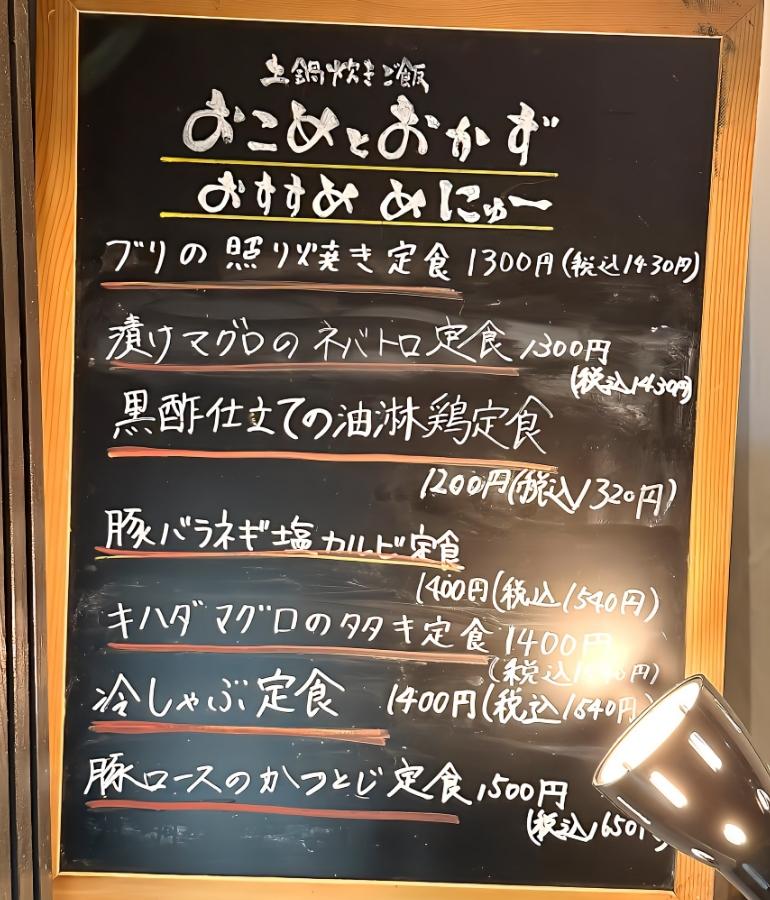 土鍋炊きご飯
おこめとおかず
おすすめ めにゅー
ブリの照り焼き定食 1300円(税込1430円)
漬けマグロのネバトロ定食 1300円
(税込1430円)
黒酢仕立ての油淋鶏定食
1200円(税込1320円)
豚バラネギ塩カルビ定食
1400円(税込1540円)
キハダマグロのタタキ定食 1400円
(税込 円)
冷しゃぶ定食 1400円(税込1540円)
豚ロースのかつとじ定食 1500円
(税込1650円